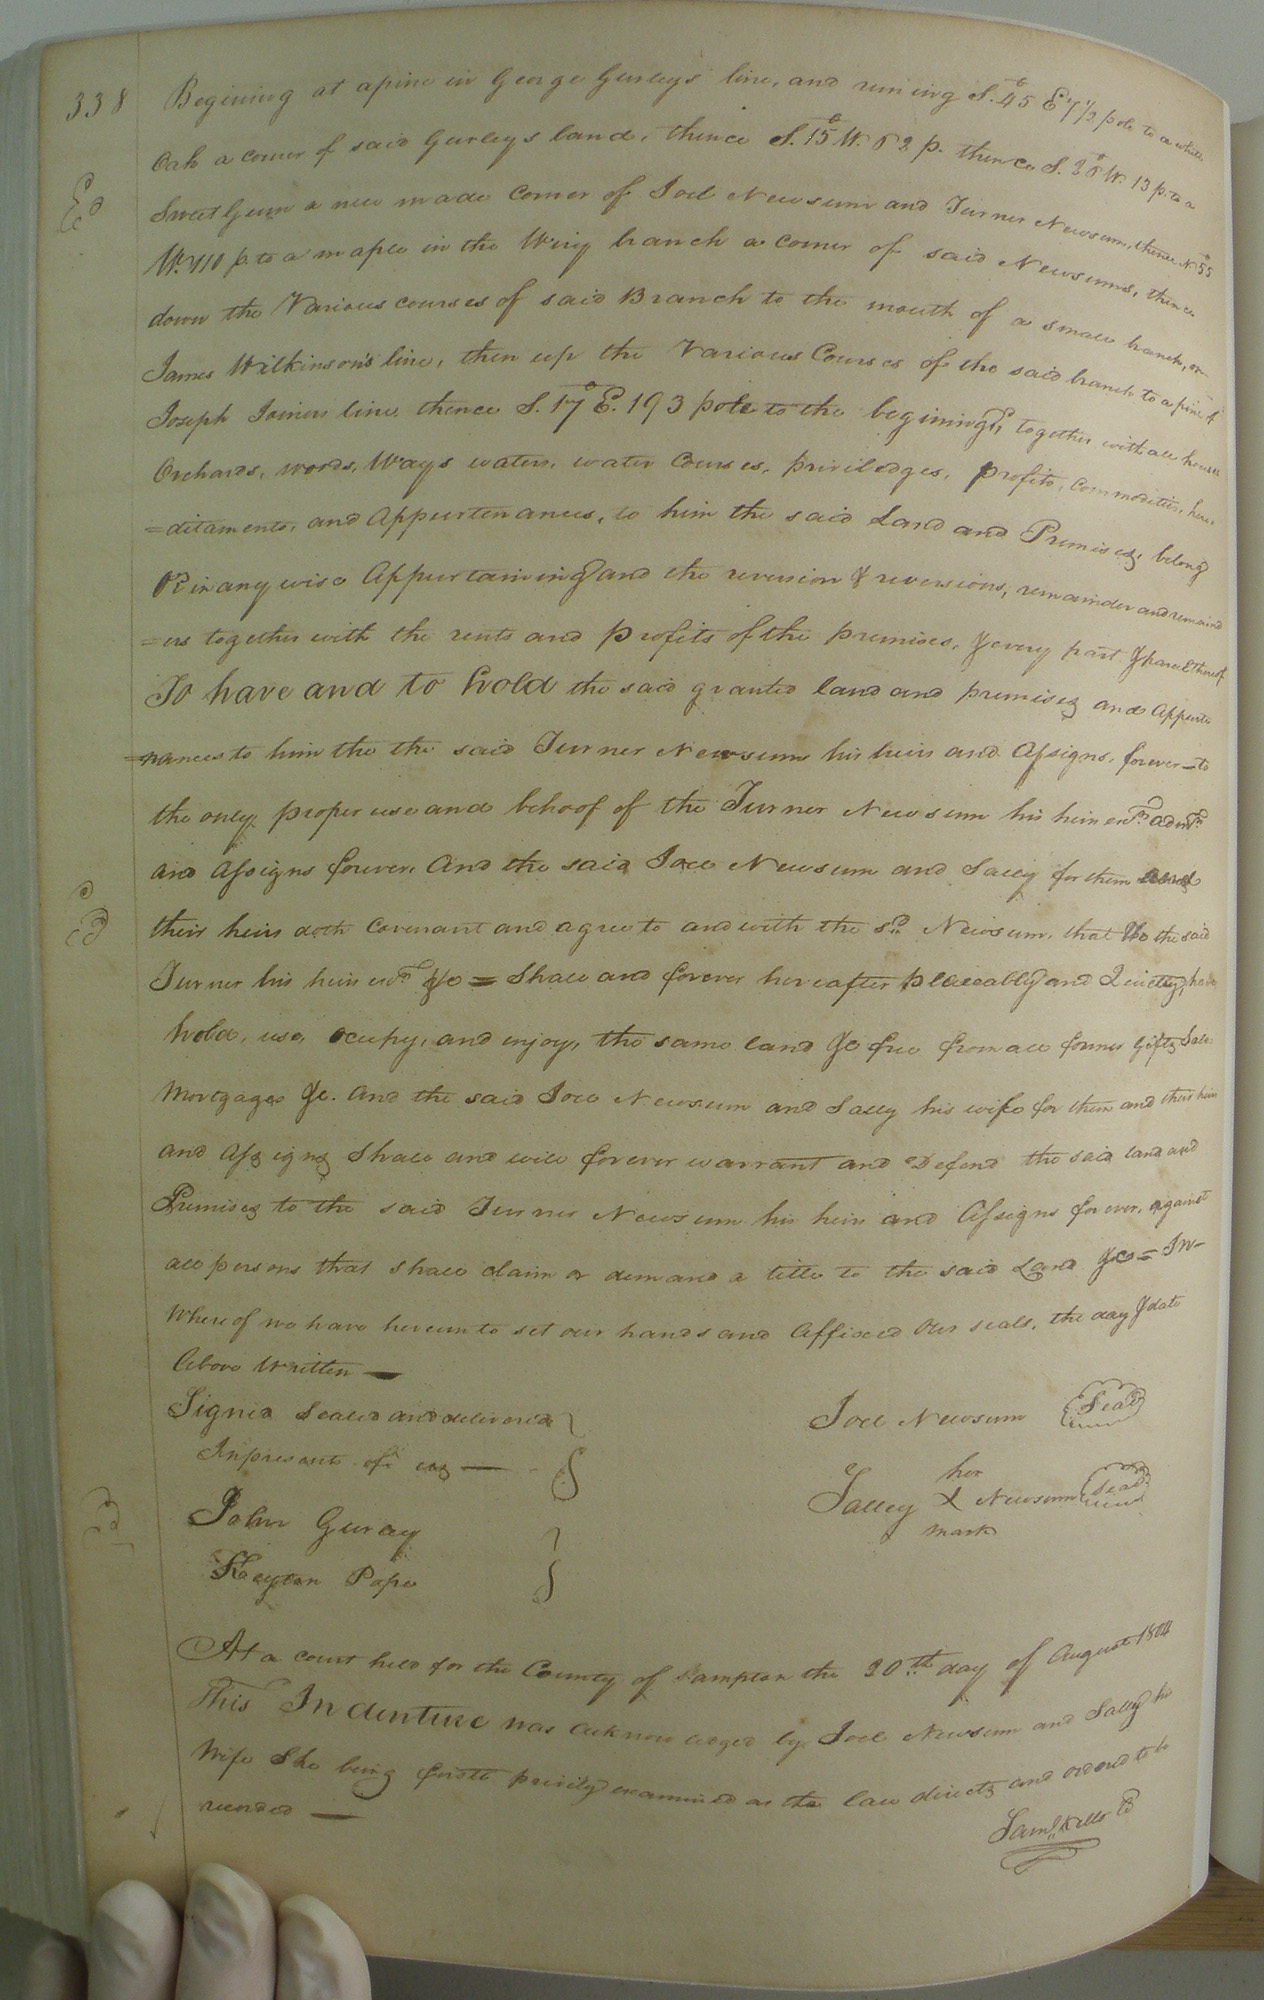 338
Begining at a pine in George Gurleys line, and runing S. 45 E 7 1/2 pole to a white
Oak a corner of said Gurleys land, thence S. 15 W. 62 p. thence S. 26 W. 13 p. to a
Sweet Gum a new made corner of Joel Newsum and Turner Newsum, thence N. 55
W. 110 p. to a maple in the Wiry branch a corner of said Newsums, thence
down the Various courses of said Branch to the mouth of a small branch, or
James Wilkinson's line, then up the Various Courses of the said branch to a pine of
Joseph Joiners line thence S. 17 E. 193 pole to the begining, together with all houses
Orchards, woods, Ways waters, water Courses, priviledges, profits, commodities, here-
=ditaments, and Appurtenances, to him the said Land and Premises, belong
Or in any wise Appurtaining and the reversion & reversions, remainder and remaind
=ers together with the rents and profits of the premises, & every part & parcel thereof
To have and to hold the said granted land and premises and Appurte
=nances to him the the said Turner Newsum his heirs and Assigns, forever = to
the only proper use and behoof of the Turner Newsum his heirs exrs. admrs.
and Assigns forever. And the said Joel Newsum and Salley for them and
their heirs doth covenant and agree to and with the sd. Newsum, that He the said
Turner his heirs exrs. &c = Shall and forever hereafter peaceably and Quietly, have
hold, use, ocupy, and enjoy, the same land &c free from all former gifts Sales
Mortgages &c. And the said Joel Newsum and Salley his wife for them and their heirs
and Assigns Shall and will forever warrant and Defend the said land and
Premises to the said Turner Newsum his heirs and Assigns forever, against
all persons that shall claim or demand a title to the said Land &c = In-
Whereof we have hereunto set our hands and affixed Our seals, the day & date
above Written —
Signed Sealed and delivered
Inpresents of us —
John Guray
Heyton Pope
Joel Newsum Seal
her
Salley X Newsum Seal
mark
At a court held for the County of Sampton the 20th day of August 1804
This Indenture was acknowledged by Joel Newsum and Salley his
Wife She being firstt privily examined as the law directs and ordered to be
recorded —
Saml. Kello CC